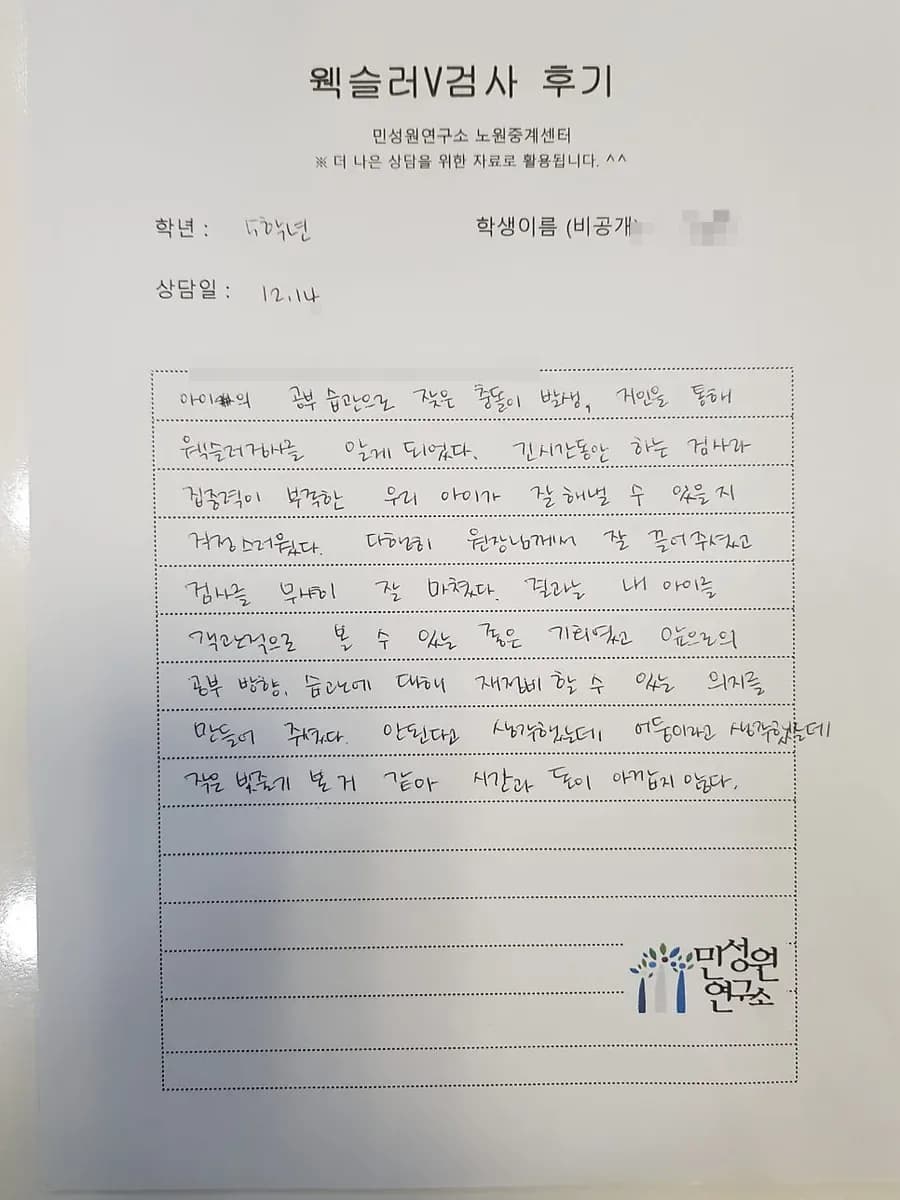 웩슬러V검사 후기
민성원연구소 노원중계센터
※ 더 나은 상담을 위한 자료로 활용됩니다. ^^
학년 : 5학년
학생이름 (비공개)
상담일 : 12.14
아이의 공부 습관으로 잦은 충돌이 발생, 지인을 통해
웩슬러검사를 알게 되었다. 긴시간동안 하는 검사라
집중력이 부족한 우리 아이가 잘 해낼 수 있을지
걱정스러웠다. 다행히 원장님께서 잘 끌어주셨고
검사를 무사히 잘 마쳤다. 결과는 내 아이를
객관적으로 볼 수 있는 좋은 기회였고 앞으로의
공부 방향, 습관에 대해 재정비 할 수 있는 의지를
만들어 주셨다. 안된다고 생각했는데 어둠이라고 생각했는데
작은 빛줄기 본 거 같아 시간과 돈이 아깝지 않다.
민성원
연구소